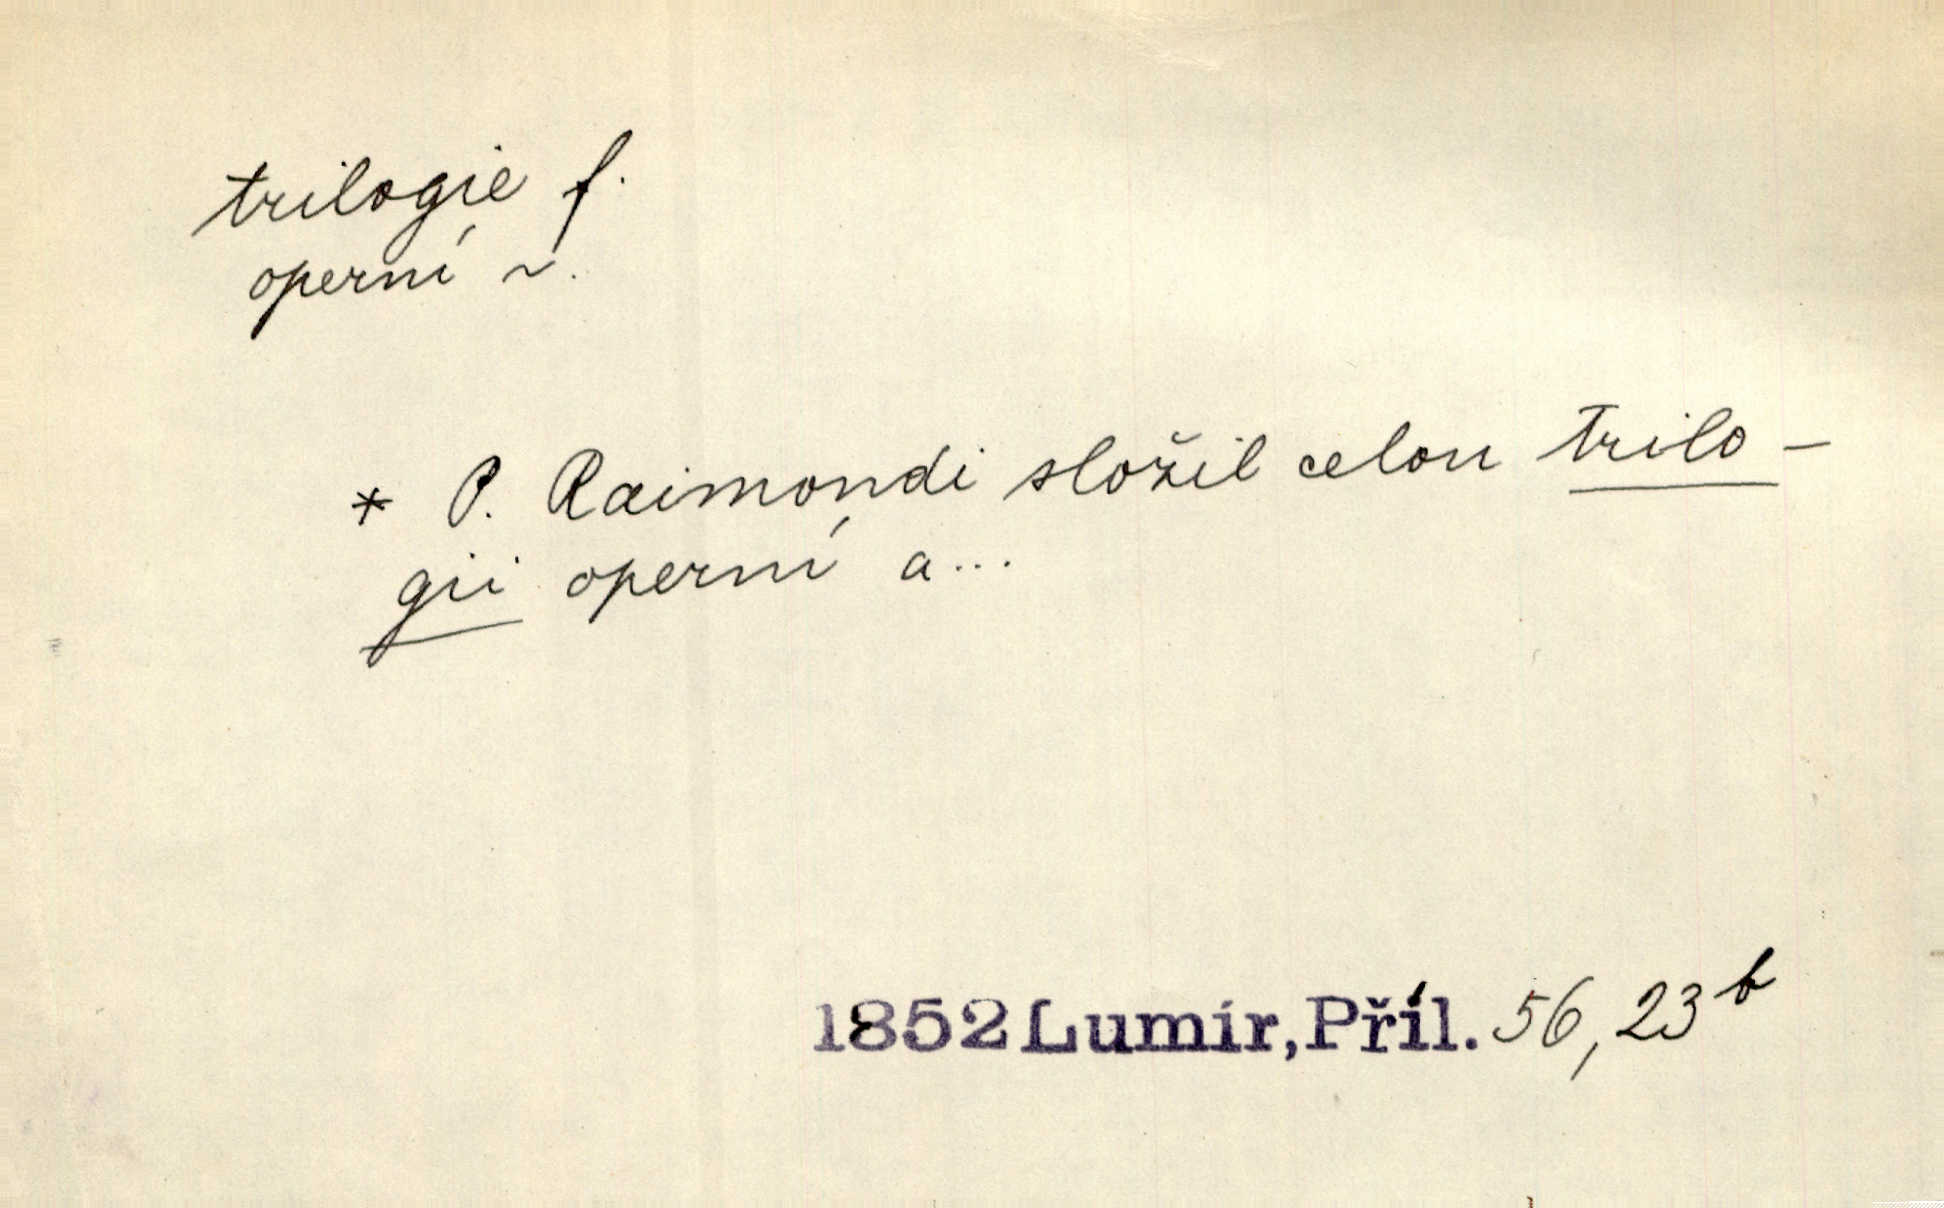 trilogie f.
operní ~.
* P. Raimondi složil celou trilo-
gii operní a...
1852 Lumír, Příl. 56, 23b